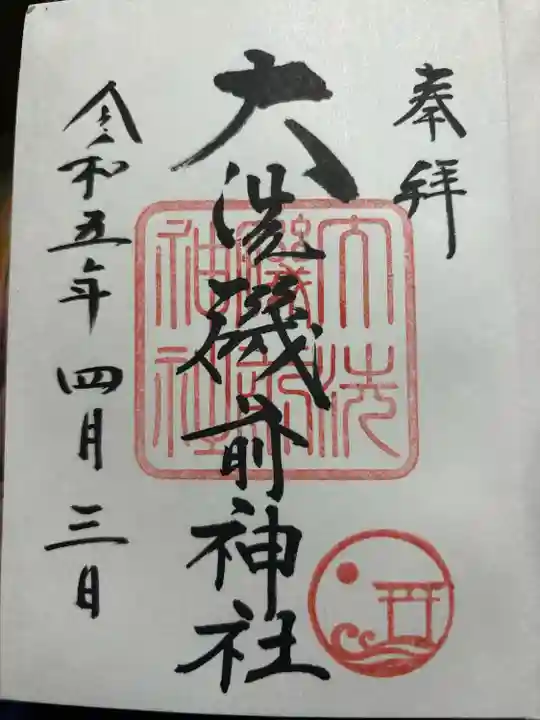 奉拝
大洗磯前神社
大洗
磯前
神社
令和五年四月三日